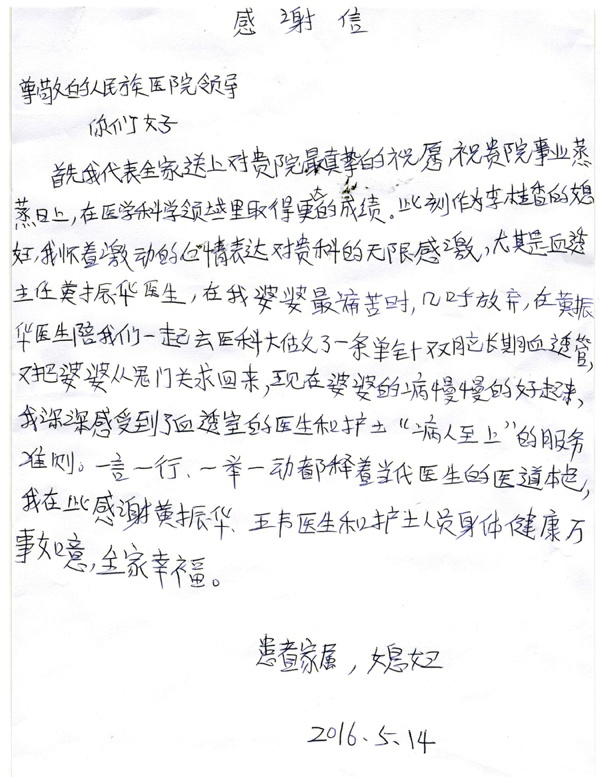 感谢信
尊敬的人民族医院领导
你们好
首先我代表全家送上对贵院最真挚的祝愿,祝贵院事业蒸
蒸日上,在医学科学领域里取得更大的成绩。此刻作为李桂香的媳
妇,我怀着激动的心情表达对贵科的无限感激,尤其是血透
主任黄振华医生,在我婆婆最痛苦时,几乎放弃,在黄振
华医生陪我们一起去医科大估文了一条单针双腔长期血透管,
对把婆婆从鬼门关求回来,现在婆婆的病慢慢的好起来,
我深深感受到了血透室的医生和护士“病人至上”的服务
准则。一言一行、一举一动都释着当代医生的医道本色,
我在此感谢黄振华、王韦医生和护士人员身体健康万
事如意,全家幸福。
患者家属,媳妇
2016.5.14